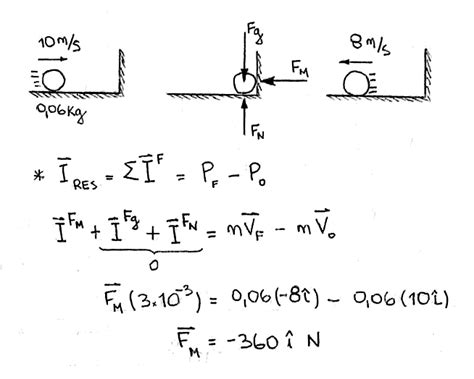 10 m/s
0,06 Kg
Fg
F_M
F_N
8 m/s
* I⃗_RES = Σ I⃗^F = P_F − P_0
I⃗^{F_M} + I⃗^{Fg} + I⃗^{F_N} = mV⃗_F − mV⃗_0
0
F⃗_M (3×10⁻³) = 0,06(-8î) − 0,06(10î)
F⃗_M = -360 î N